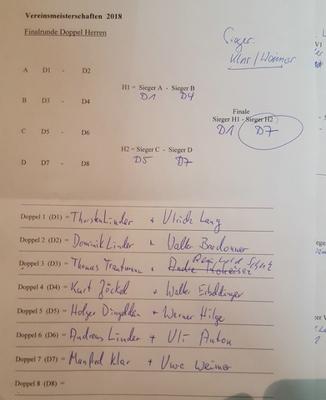 Vereinsmeisterschaften 2018
Finalrunde Doppel Herren
Sieger:
Klar/Weimer
A D1 - D2
H1 = Sieger A - Sieger B
D1 D4
B D3 - D4
Finale
Sieger H1 - Sieger H2
D1 D7
C D5 - D6
H2 = Sieger C - Sieger D
D5 D7
D D7 - D8
Doppel 1 (D1) = Thorsten Linder + Ulrich Lang
Doppel 2 (D2) = Dominik Linder + Walter
Doppel 3 (D3) = Thomas Trautmann +
Doppel 4 (D4) = Kurt Jöckel + Walter
Doppel 5 (D5) = Holger + Werner Hilge
Doppel 6 (D6) = Andreas Linder + Uli Anton
Doppel 7 (D7) = Manfred Klar + Uwe Weimer
Doppel 8 (D8) =